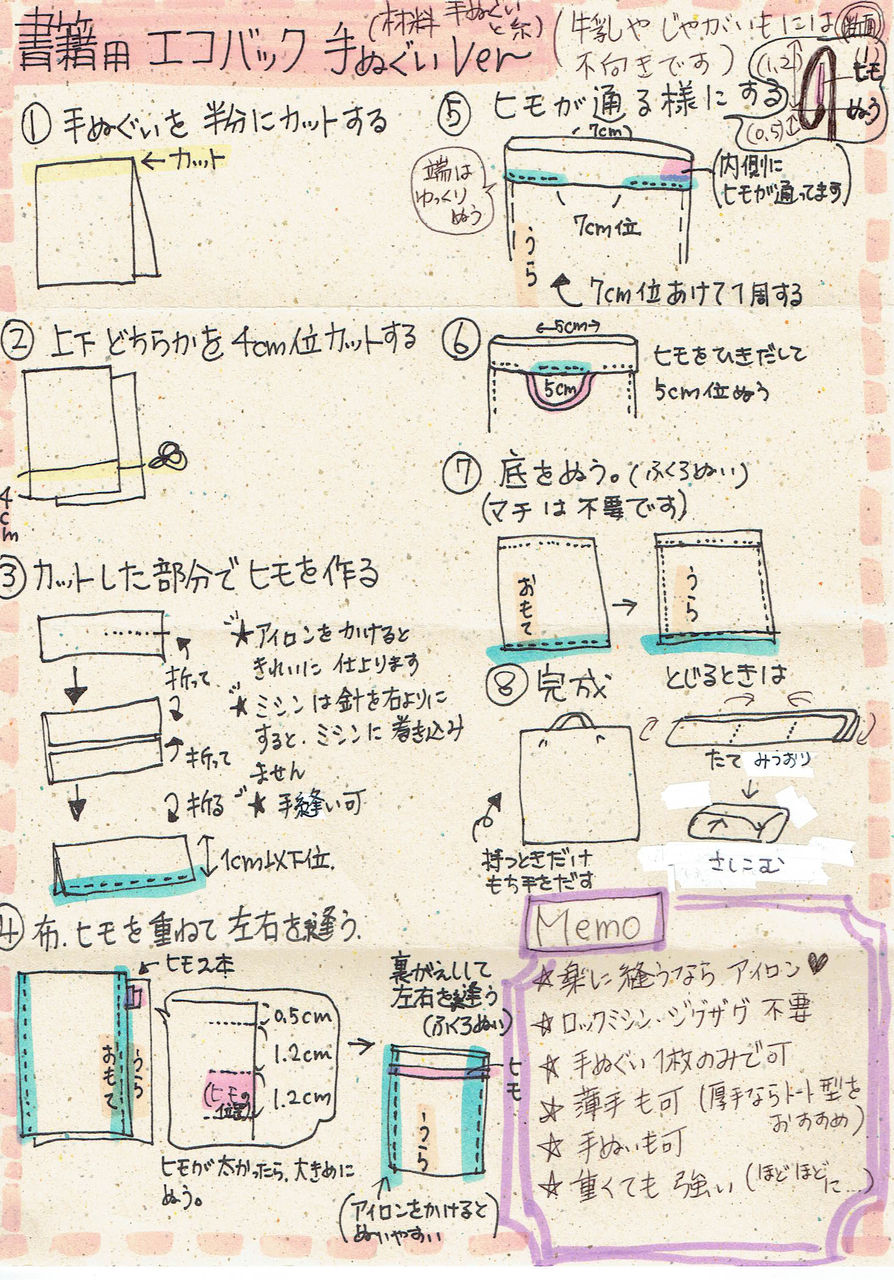 書籍用 エコバック 手ぬぐい Ver〜
(材料 手ぬぐいと糸)
(牛乳や じゃがいもには
不向きです)
断面
(1,2)
ヒモ
ぬう
(0,5)
① 手ぬぐいを 半分にカットする
←カット
② 上下 どちらかを 4cm位カットする
4cm
③ カットした部分でヒモを作る
折って
折って
折る
★アイロンをかけると
きれいに 仕上ります
★ミシンは針を右よりに
すると、ミシンに巻き込み
ません
★手縫い可
1cm以下位.
④ 布、ヒモを重ねて 左右を縫う.
ヒモ2本
おもて
うら
0.5cm
1.2cm
1.2cm
(ヒモの
位置)
ヒモが太かったら、大きめに
ぬう。
裏がえしして
左右を縫う
(ふくろぬい)
ヒモ
うら
(アイロンをかけると
ぬいやすい)
⑤ ヒモが通る様にする
7cm
端は
ゆっくり
ぬう
(内側に
ヒモが通ってます)
7cm位
うら
7cm位あけて1周する
⑥
5cm
5cm
ヒモをひきだして
5cm位ぬう
⑦ 底をぬう。(ふくろぬい)
(マチは不要です)
おもて
→
うら
⑧ 完成
持つときだけ
もち手をだす
とじるときは
たて みつおり
さしこむ
Memo
★楽に縫うなら アイロン♥
☆ロックミシン・ジグザグ 不要
☆手ぬぐい1枚のみで可
☆薄手も可 (厚手ならトート型を
おすすめ)
☆手ぬいも可
☆重くても 強い (ほどほど
に…)